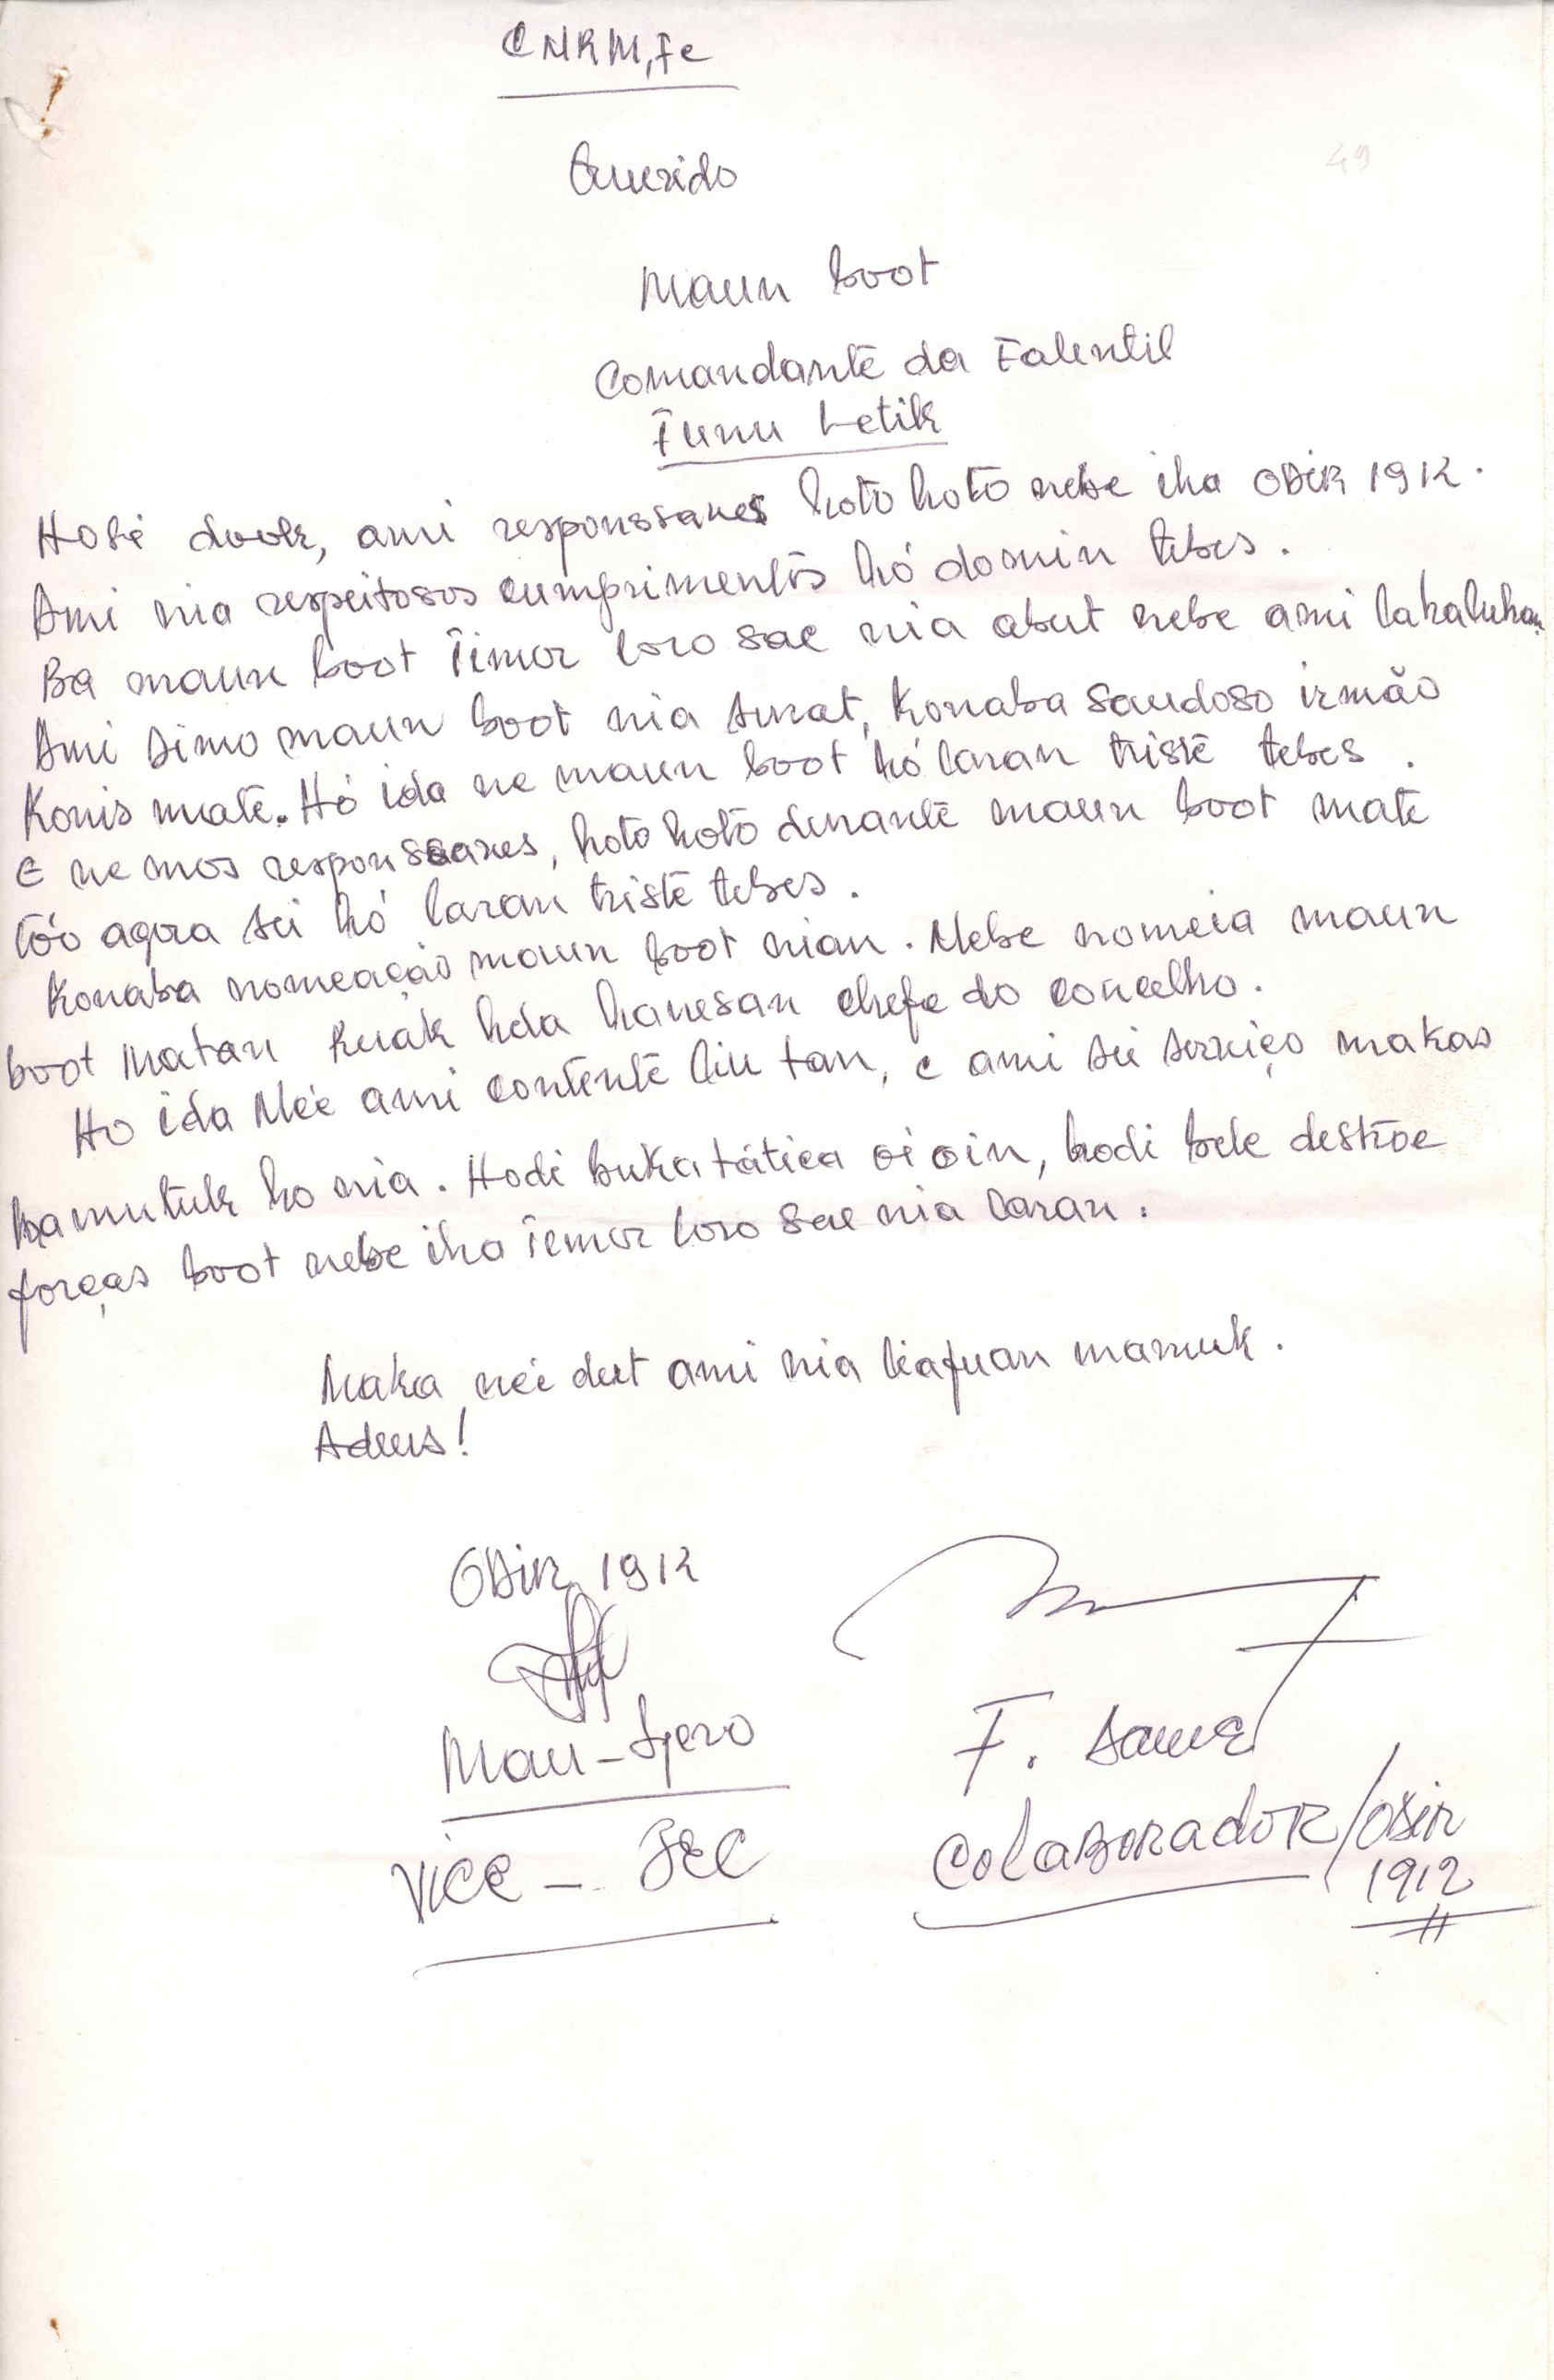 CNRM, Fe
49
Querido
Maun boot
Comandante da Falentil
Funu Letik
Hosi dook, ami responssaves hoto hoto nebe iha OBIR 1912.
Ami nia respeitosos cumprimentos hó domin tebes.
Ba maun boot Timor loro sae nia abut nebe ami lakaluhan.
Ami simo maun boot nia surat, Konaba saudoso irmão
Konis mate. Hó ida ne maun boot hó laran triste tebes.
E ne mos responssaves, hoto hoto durante maun boot mate
tóo agora sei hó laran triste tebes.
Konaba nomeação maun boot nian. Nebe nomeia maun
boot Matan Ruak hda hanesan chefe do concelho.
Ho ida Neé ami contente liu tan, e ami sei serviço makas
hamutuk ho nia. Hodi buka tática oi oin, hodi bele destroe
forças boot nebe iha Timor loro sae nia laran.
Maka neé det ami nia liafuan mamuk.
Adeus!
OBIR 1912
Mau-
F.
Vice - SEC
Colaborador/OBIR
1912